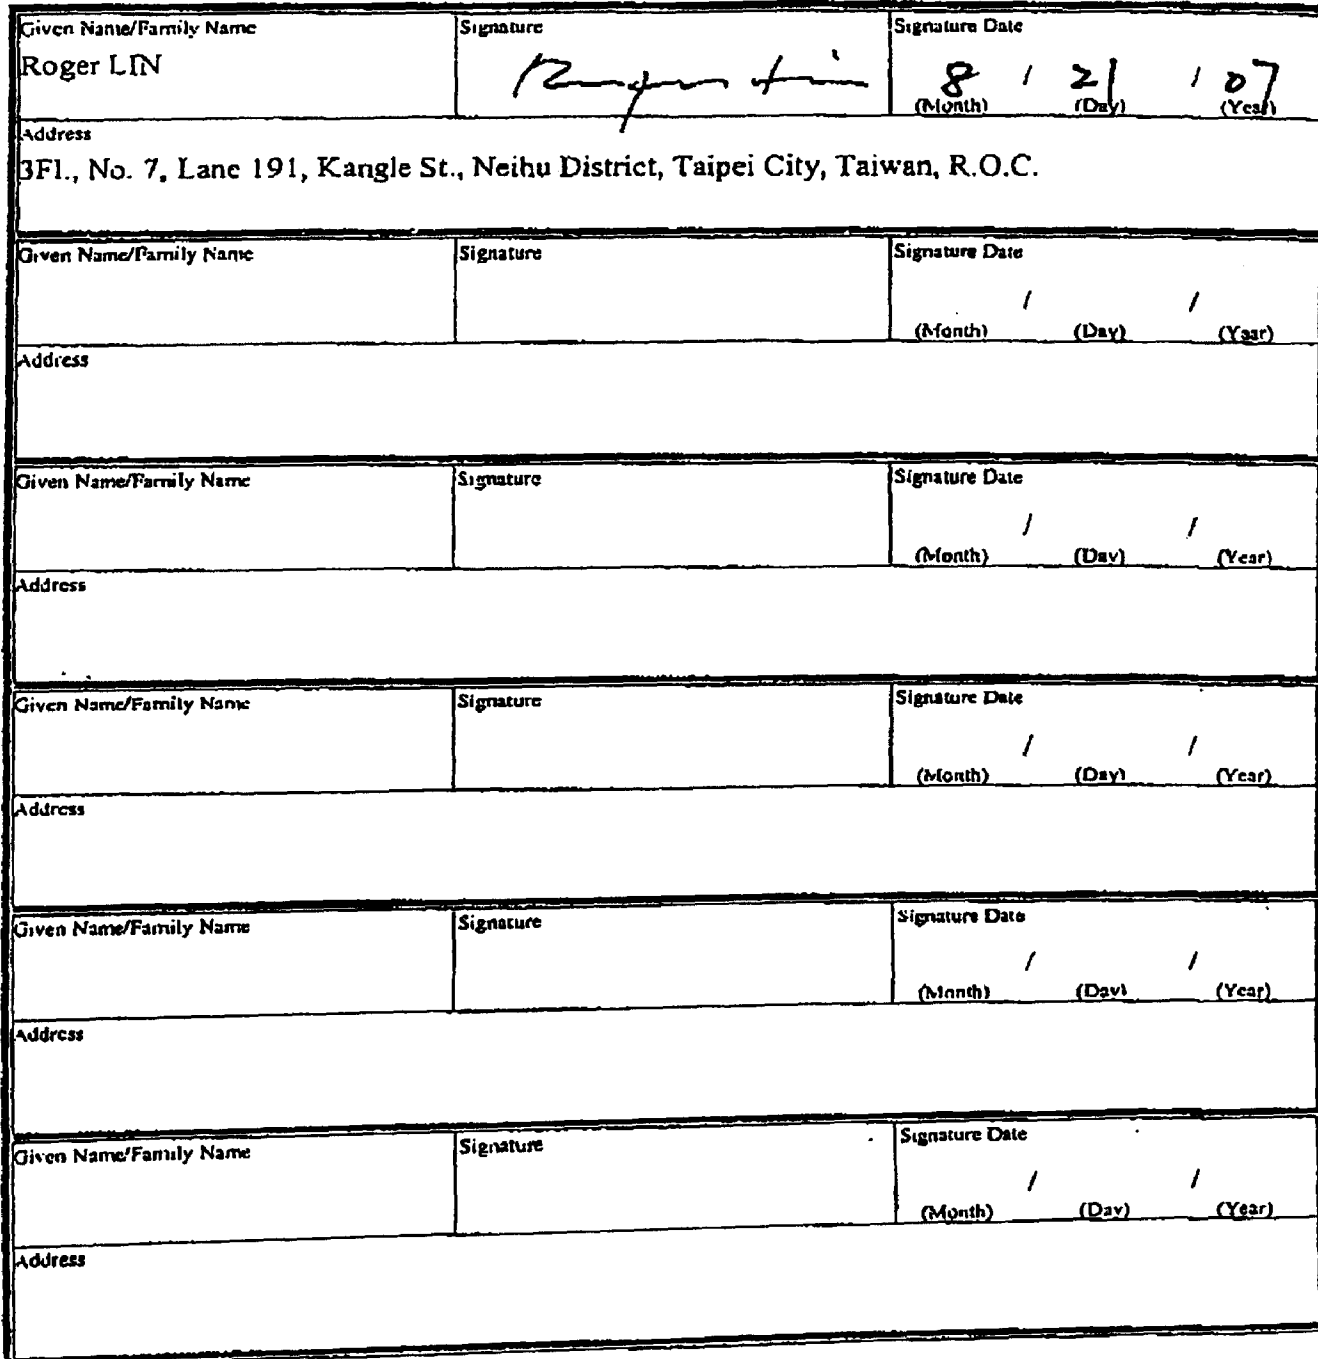 Given Name/Family Name Signature Signature Date
Roger LIN Roger Lin 8 / 21 / 07
(Month) (Day) (Year)
Address
3Fl., No. 7, Lane 191, Kangle St., Neihu District, Taipei City, Taiwan, R.O.C.
Given Name/Family Name Signature Signature Date
/ /
(Month) (Day) (Year)
Address
Given Name/Family Name Signature Signature Date
/ /
(Month) (Day) (Year)
Address
Given Name/Family Name Signature Signature Date
/ /
(Month) (Day) (Year)
Address
Given Name/Family Name Signature Signature Date
/ /
(Month) (Day) (Year)
Address
Given Name/Family Name Signature Signature Date
/ /
(Month) (Day) (Year)
Address